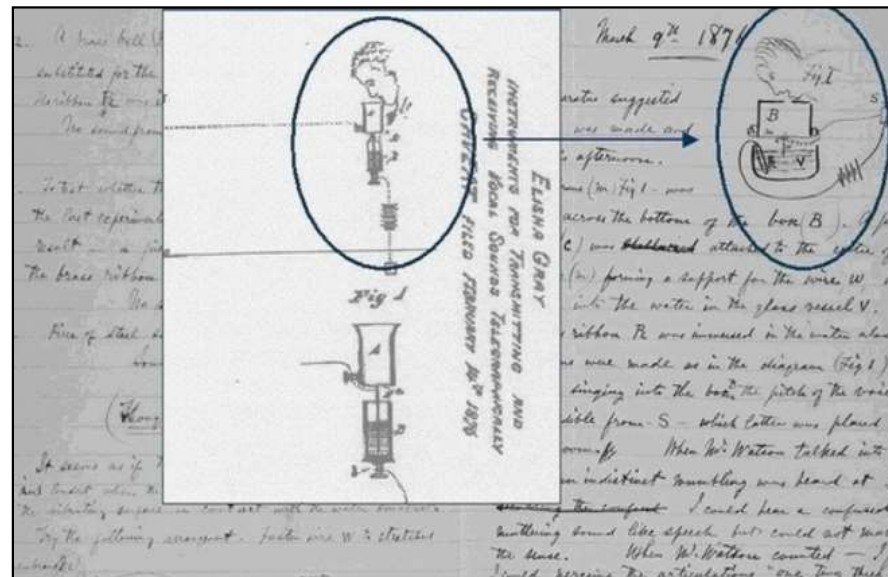 2. A brass bell
substituted for the
ribbon R was
No sound from
To test whether the
the last experiment
result — a
the brass ribbon
No
Piece of steel
It seems as if
the vibrating surface in contact with the water
Try the following arrangement. Fasten wire W to stretched
ELISHA GRAY
INSTRUMENTS FOR TRANSMITTING AND
RECEIVING VOCAL SOUNDS TELEGRAPHICALLY
CAVEAT FILED FEBRUARY 14th 1876
Fig 1
A
March 9th 1876
Fig 1
S
B
V
apparatus suggested
was made and
afternoon.
(m) Fig 1 - was
across the bottom of the box (B). A
(C) was attached to the centre of
(m) forming a support for the wire W
into the water in the glass vessel V.
ribbon R was immersed in the water also
were made as in the diagram (Fig 1)
singing into the box, the pitch of the voice
audible from - S - which latter was placed
room. When Mr. Watson talked into
an indistinct mumbling was heard at
I could hear a confused
muttering sound like speech but could not make
the sense. When Mr. Watson counted — I
could perceive the articulations "one, two, three